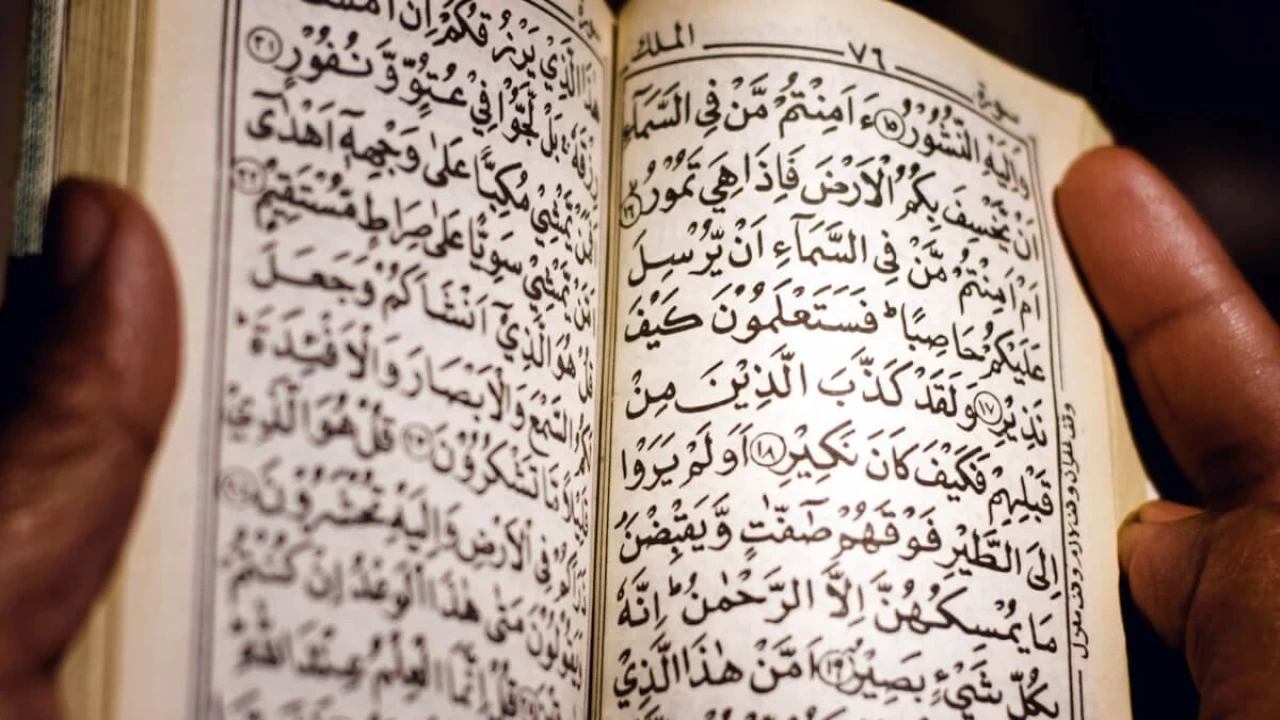 سورة ٧٦ الملك
وَاِلَيْهِ النُّشُوْرُ ١٥ ءَاَمِنْتُمْ مَّنْ فِى السَّمَآءِ
اَنْ يَّخْسِفَ بِكُمُ الْاَرْضَ فَاِذَا هِيَ تَمُوْرُ ١٦
اَمْ اَمِنْتُمْ مَّنْ فِى السَّمَآءِ اَنْ يُّرْسِلَ
عَلَيْكُمْ حَاصِبًا ؕ فَسَتَعْلَمُوْنَ كَيْفَ
نَذِيْرِ ١٧ وَلَقَدْ كَذَّبَ الَّذِيْنَ مِنْ
قَبْلِهِمْ فَكَيْفَ كَانَ نَكِيْرِ ١٨ اَوَلَمْ يَرَوْا
اِلَى الطَّيْرِ فَوْقَهُمْ صٰٓفّٰتٍ وَّيَقْبِضْنَ ؕ
مَا يُمْسِكُهُنَّ اِلَّا الرَّحْمٰنُ ؕ اِنَّهٗ
بِكُلِّ شَيْءٍۭ بَصِيْرٌ ١٩ اَمَّنْ هٰذَا الَّذِيْ
هٰذَا الَّذِيْ يَرْزُقُكُمْ اِنْ اَمْسَكَ
رِزْقَهٗ ۚ بَلْ لَّجُّوْا فِيْ عُتُوٍّ وَّنُفُوْرٍ ٢١
يَّمْشِيْ مُكِبًّا عَلٰى وَجْهِهٖٓ اَهْدٰٓى
اَمَّنْ يَّمْشِيْ سَوِيًّا عَلٰى صِرَاطٍ مُّسْتَقِيْمٍ ٢٢
قُلْ هُوَ الَّذِيْٓ اَنْشَاَكُمْ وَجَعَلَ
لَكُمُ السَّمْعَ وَالْاَبْصَارَ وَالْاَفْـِٕدَةَ ؕ
قَلِيْلًا مَّا تَشْكُرُوْنَ ٢٣ قُلْ هُوَ الَّذِيْ
ذَرَاَكُمْ فِى الْاَرْضِ وَاِلَيْهِ تُحْشَرُوْنَ ٢٤
وَيَقُوْلُوْنَ مَتٰى هٰذَا الْوَعْدُ اِنْ كُنْتُمْ
قُلْ اِنَّمَا الْعِلْمُ عِنْدَ اللّٰهِ